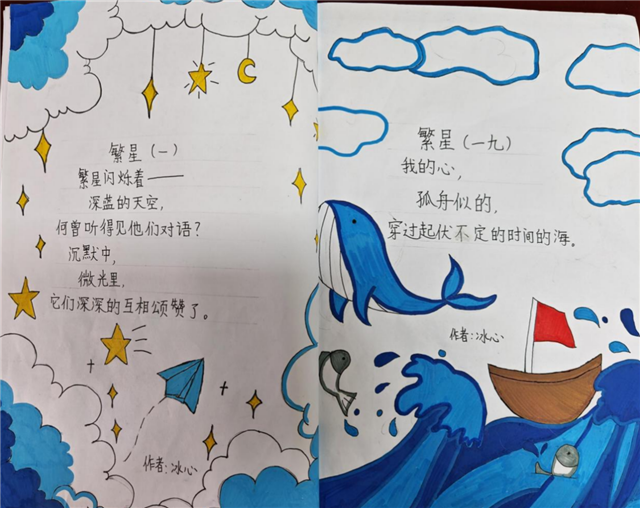 繁星（一）
繁星闪烁着——
深蓝的天空，
何曾听得见他们对语？
沉默中，
微光里，
它们深深的互相颂赞了。
作者：冰心
繁星（一九）
我的心，
孤舟似的，
穿过起伏不定的时间的海。
作者：冰心